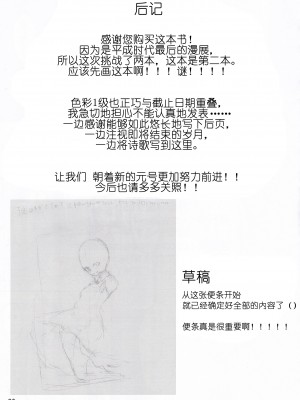 后记
感谢您购买这本书！
因为是平成时代最后的漫展，
所以这次挑战了两本，这本是第二本。
应该先画这本啊！！！谜！！！！
色彩1级也正巧与截止日期重叠，
我急切地担心不能认真地发表……
一边感谢能够如此悠长地写下后页，
一边注视即将结束的岁月，
一边将诗歌写到这里。
让我们 朝着新的元号更加努力前进！！
今后也请多多关照！！
草稿
从这张便条开始
就已经确定好全部的内容了（）
便条真是很重要啊！！！！！